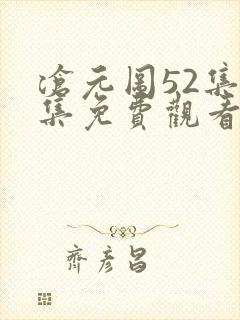 滄元圖52集
集免費觀看
齊彥昌